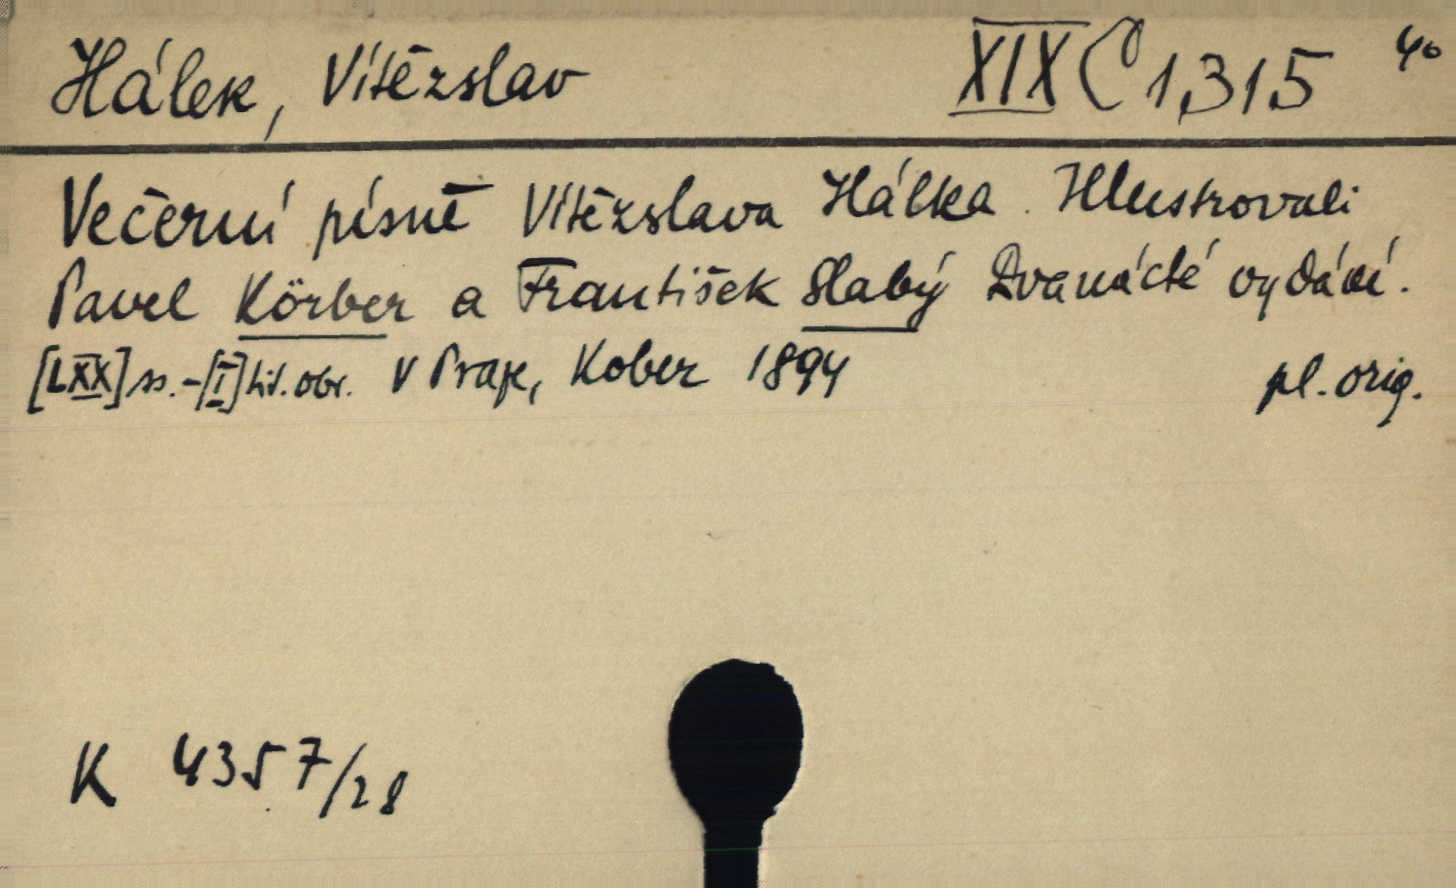 Hálek, Vítězslav XIX C 1,315 4o
Večerní písně Vítězslava Hálka. Illustrovali
Pavel Körber a František Slabý Dvanácté vydání.
[LXX] ss. - [I] tit. obr. V Praze, Kober 1894 pl. orig.
K 4357/28